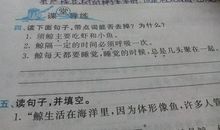 课堂导练
四、读下面句子,带点词能否去掉?为什么?
1. 须鲸主要吃虾和小鱼。
2. 鲸隔一定的时间必须呼吸一次。
3. 鲸每天都要睡觉,睡觉的时候,总是几头聚在一起。
五、读句子,并填空。
1. “鲸生活在海洋里,因为体形像鱼,许多人管